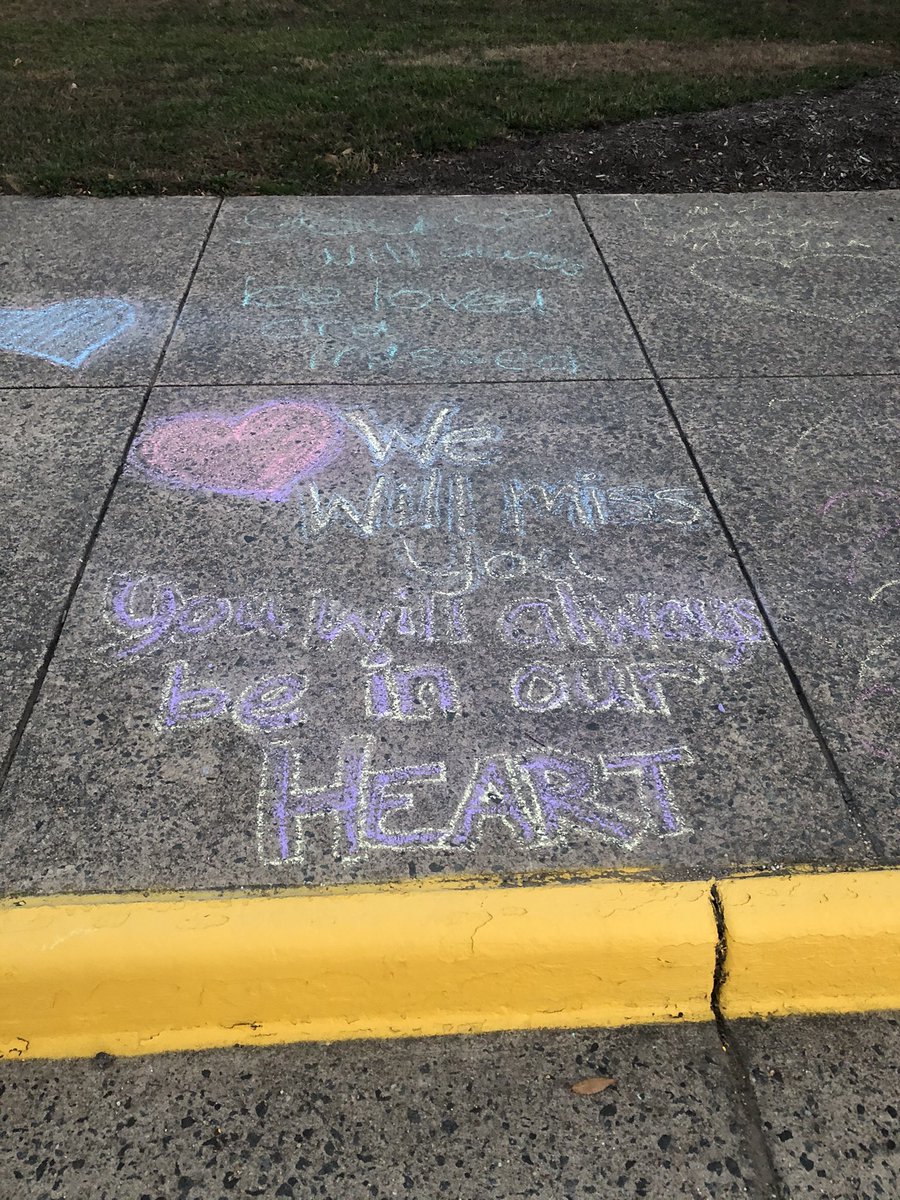 Will always
be loved
and
missed
We
Will miss
you
You will always
be in our
HEART